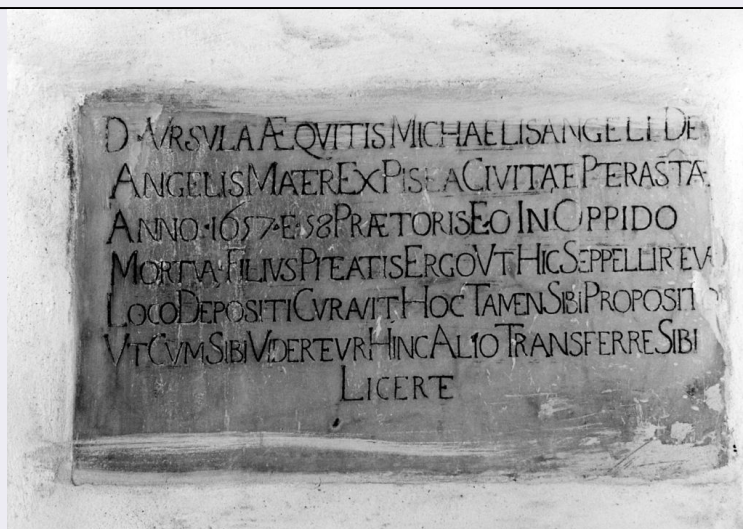 D·VRSVLA ÆQVITIS MICHAELISANGELI DE
ANGELIS MATER EX PISCIA CIVITATE PERASTA
ANNO·1657·E·58 PRÆTORIS EO IN OPPIDO
MORTVA·FILIVS PIETATIS ERGO VT HIC SEPPELLIRETVR
LOCO DEPOSITI CVRAVIT HOC TAMEN SIBI PROPOSITO
VT CVM SIBI VIDERETVR HINC ALIO TRANSFERRE SIBI
LICERET